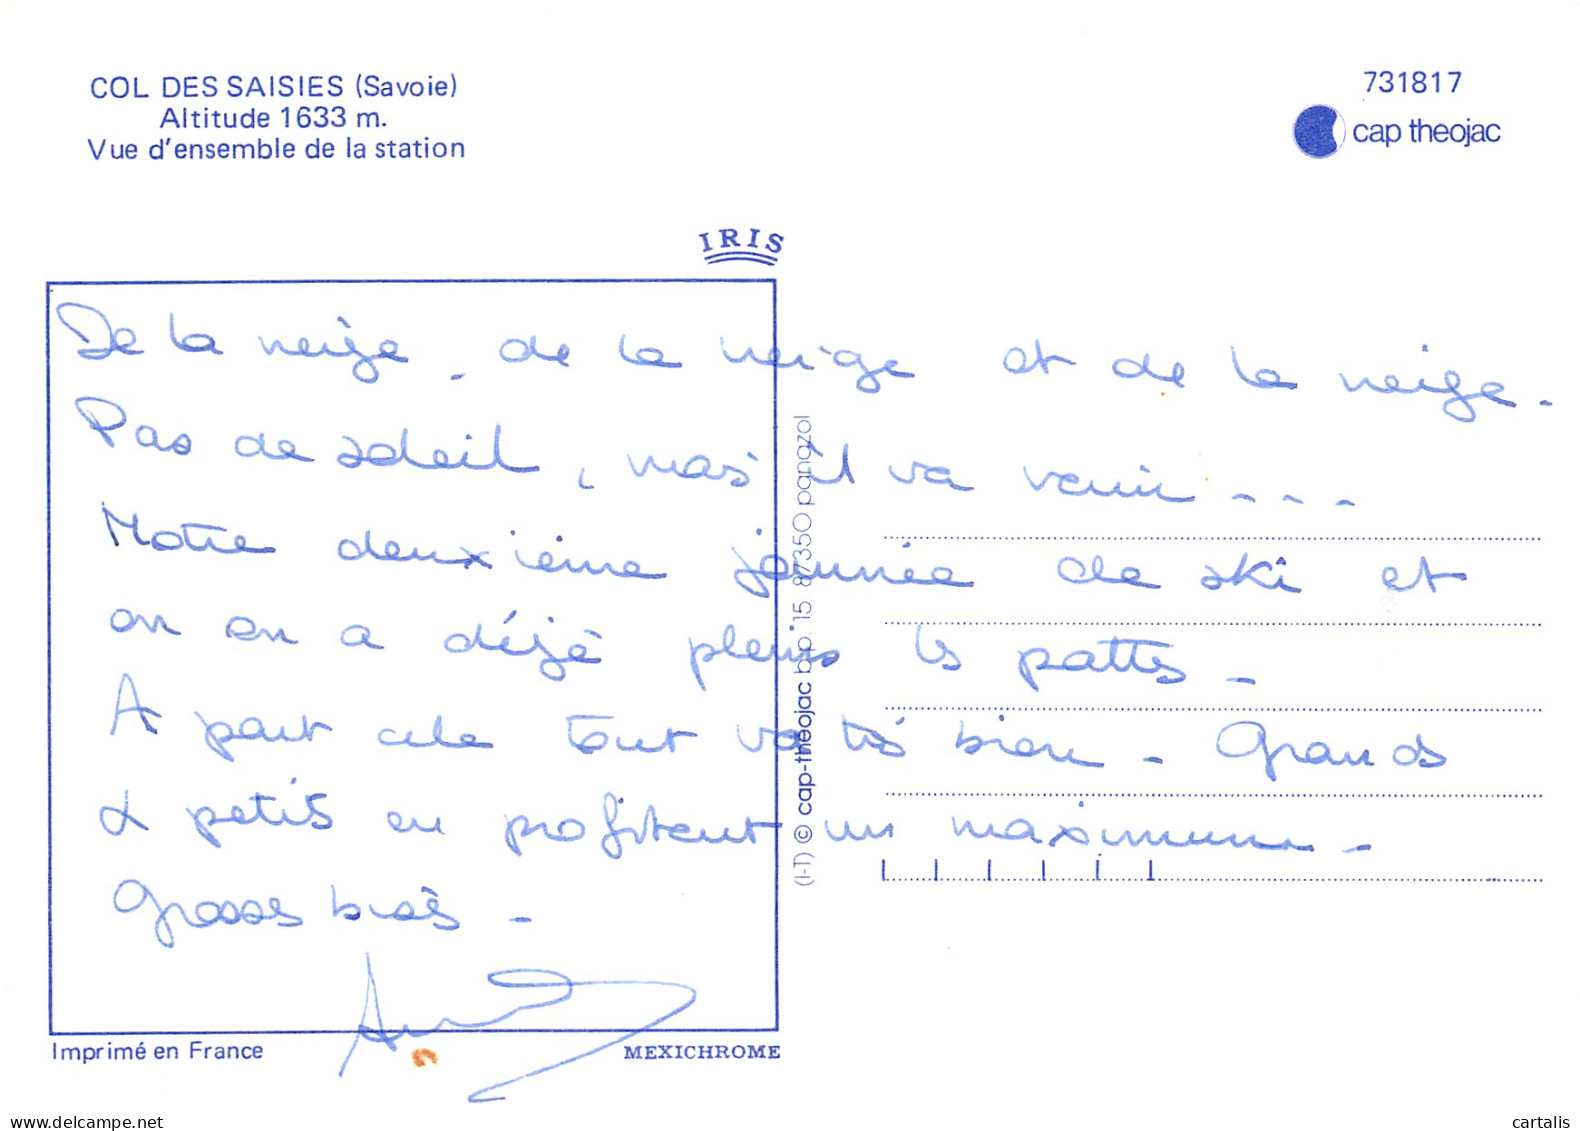 COL DES SAISIES (Savoie)
Altitude 1633 m.
Vue d'ensemble de la station
731817
cap theojac
IRIS
De la neige, de la neige et de la neige.
Pas de soleil, mais il va venir ...
Notre deuxième journée de ski et
on en a déjà pleins les pattes.
A part cela tout va très bien. Grands
& petits en profitent un maximum.
Grosses bises.
(I-T) © cap-théojac b.p. 15 87350 panazol
Imprimé en France
MEXICHROME
www.delcampe.net
cartalis